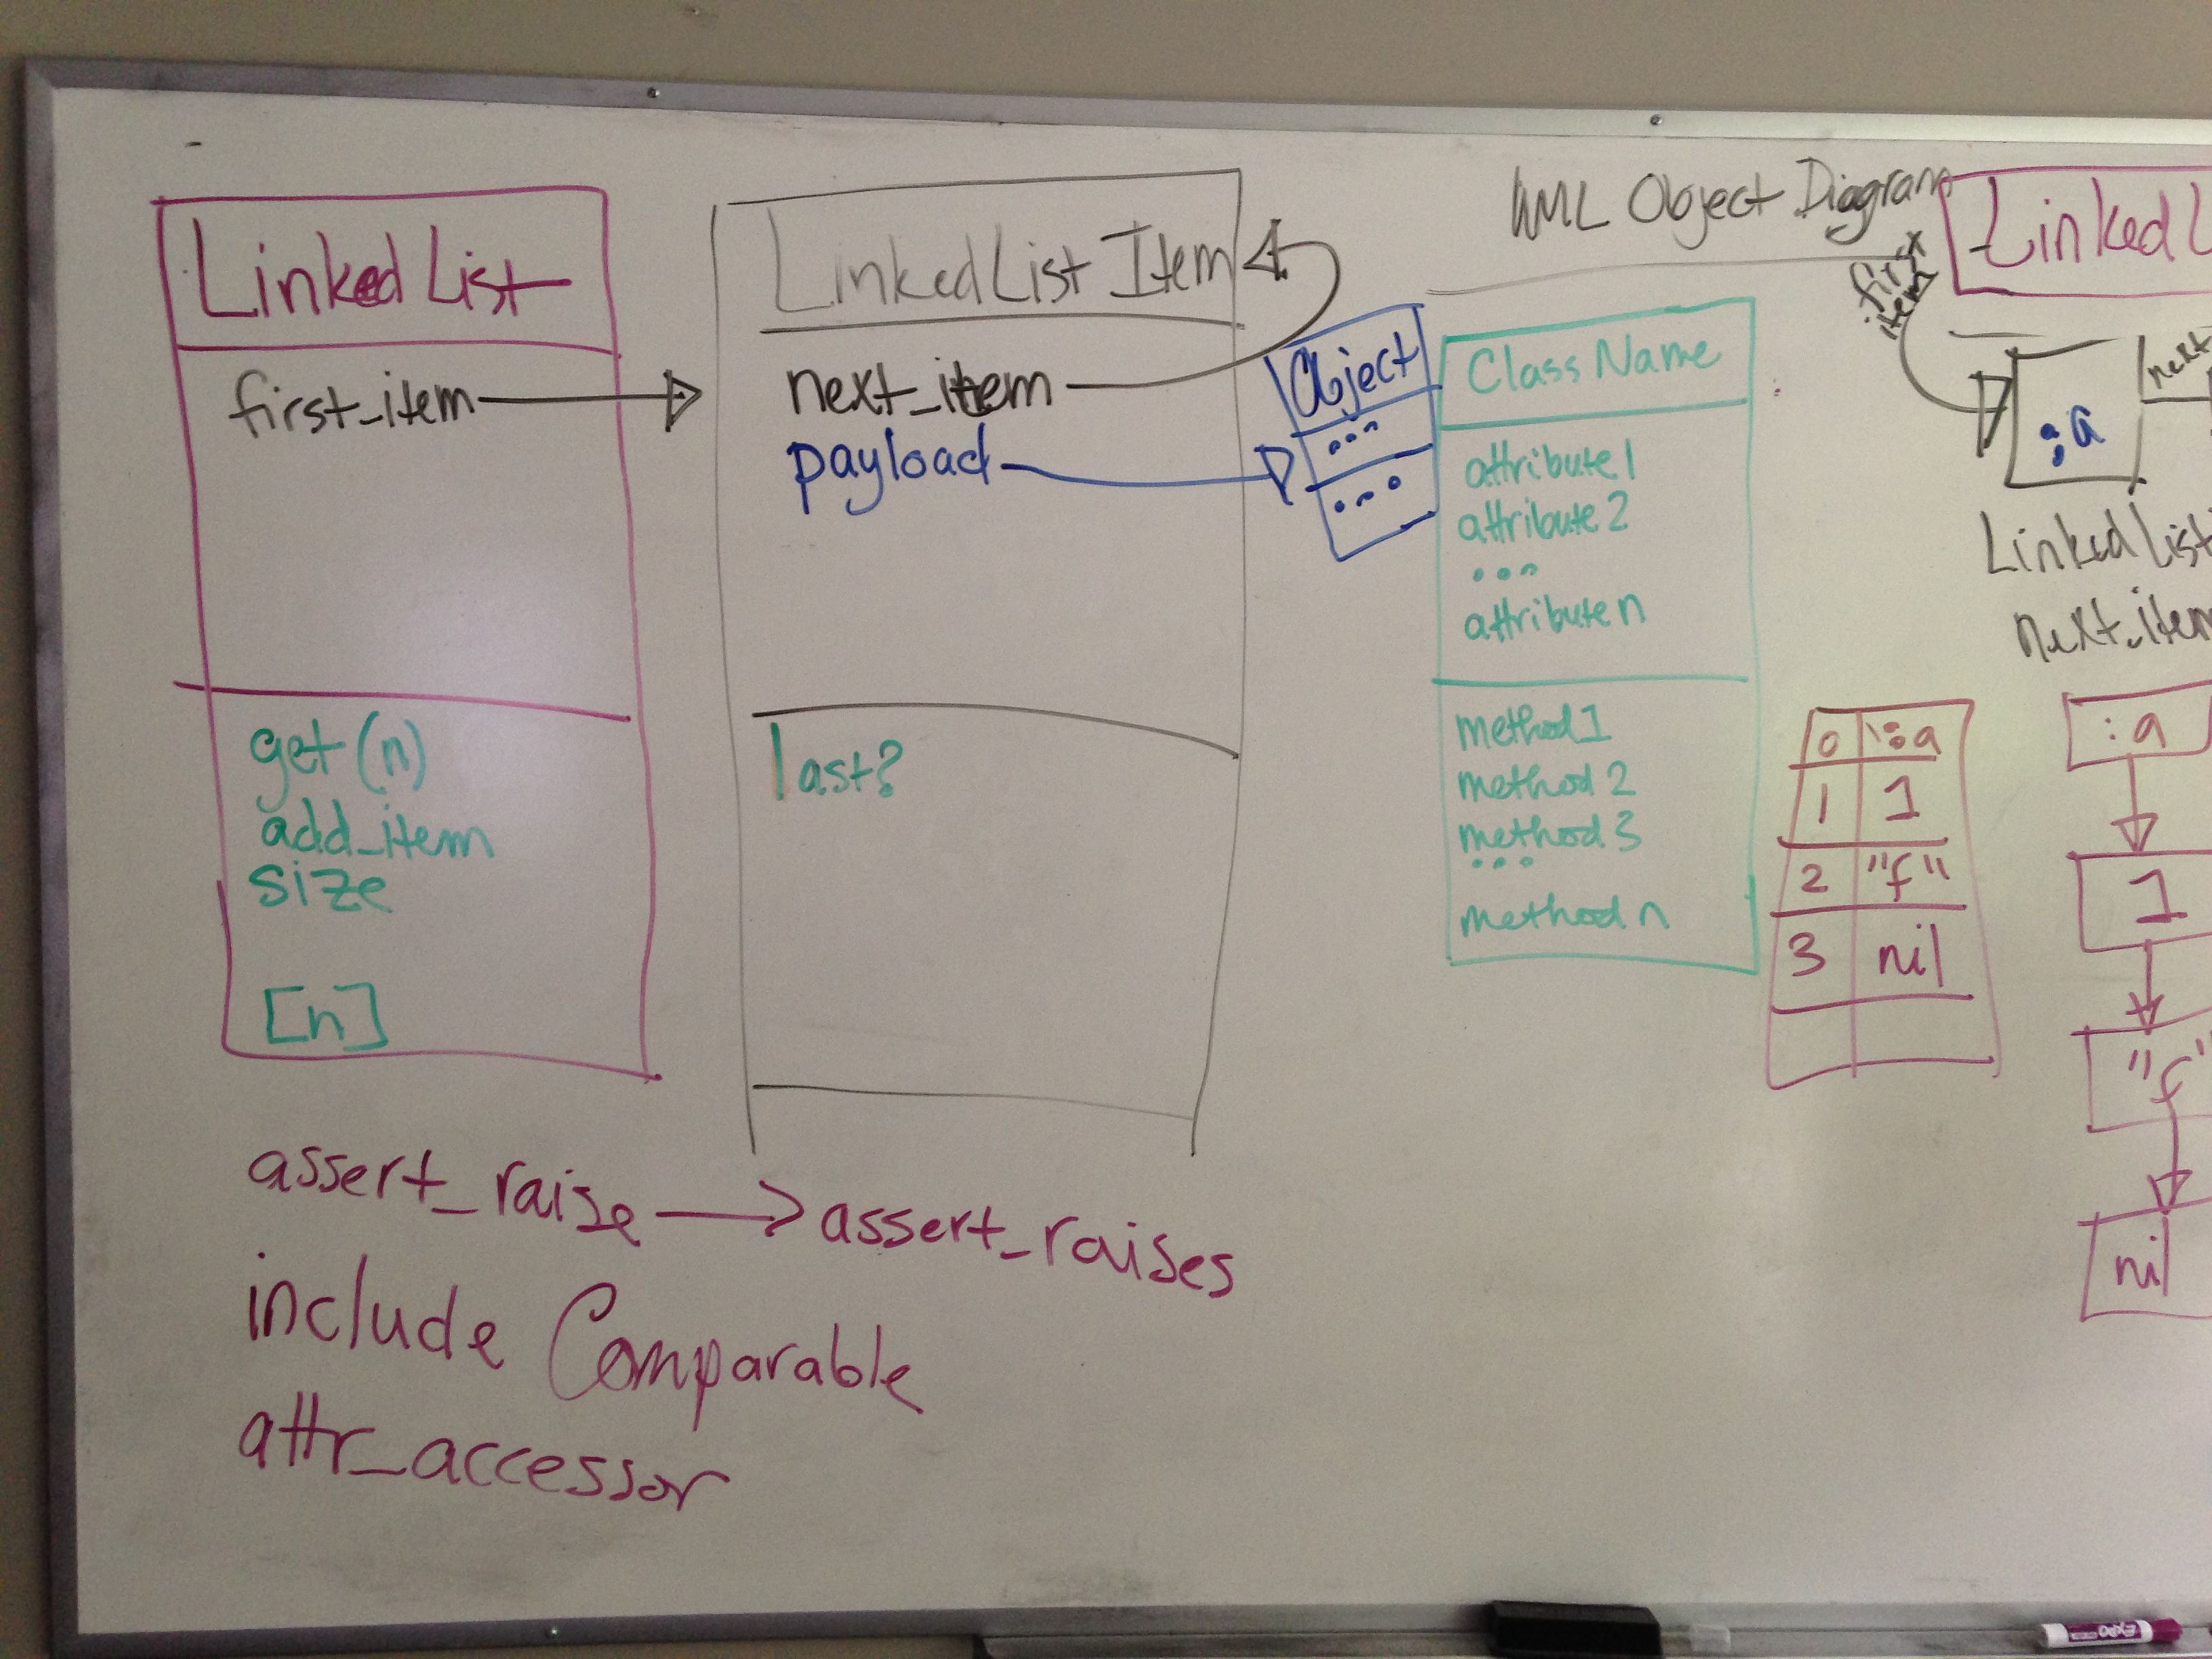 Linked List
first_item
get(n)
add_item
size
[n]
LinkedList Item
next_item
payload
last?
Object
...
...
UML Object Diagram
ClassName
attribute1
attribute2
...
attribute n
method1
method2
method3
...
method n
Linked L
first
item
next
:a
Linked List
next_item
0 :a
1 1
2 "f"
3 nil
:a
1
"f"
nil
assert_raise → assert_raises
include Comparable
attr_accessor
EXPO